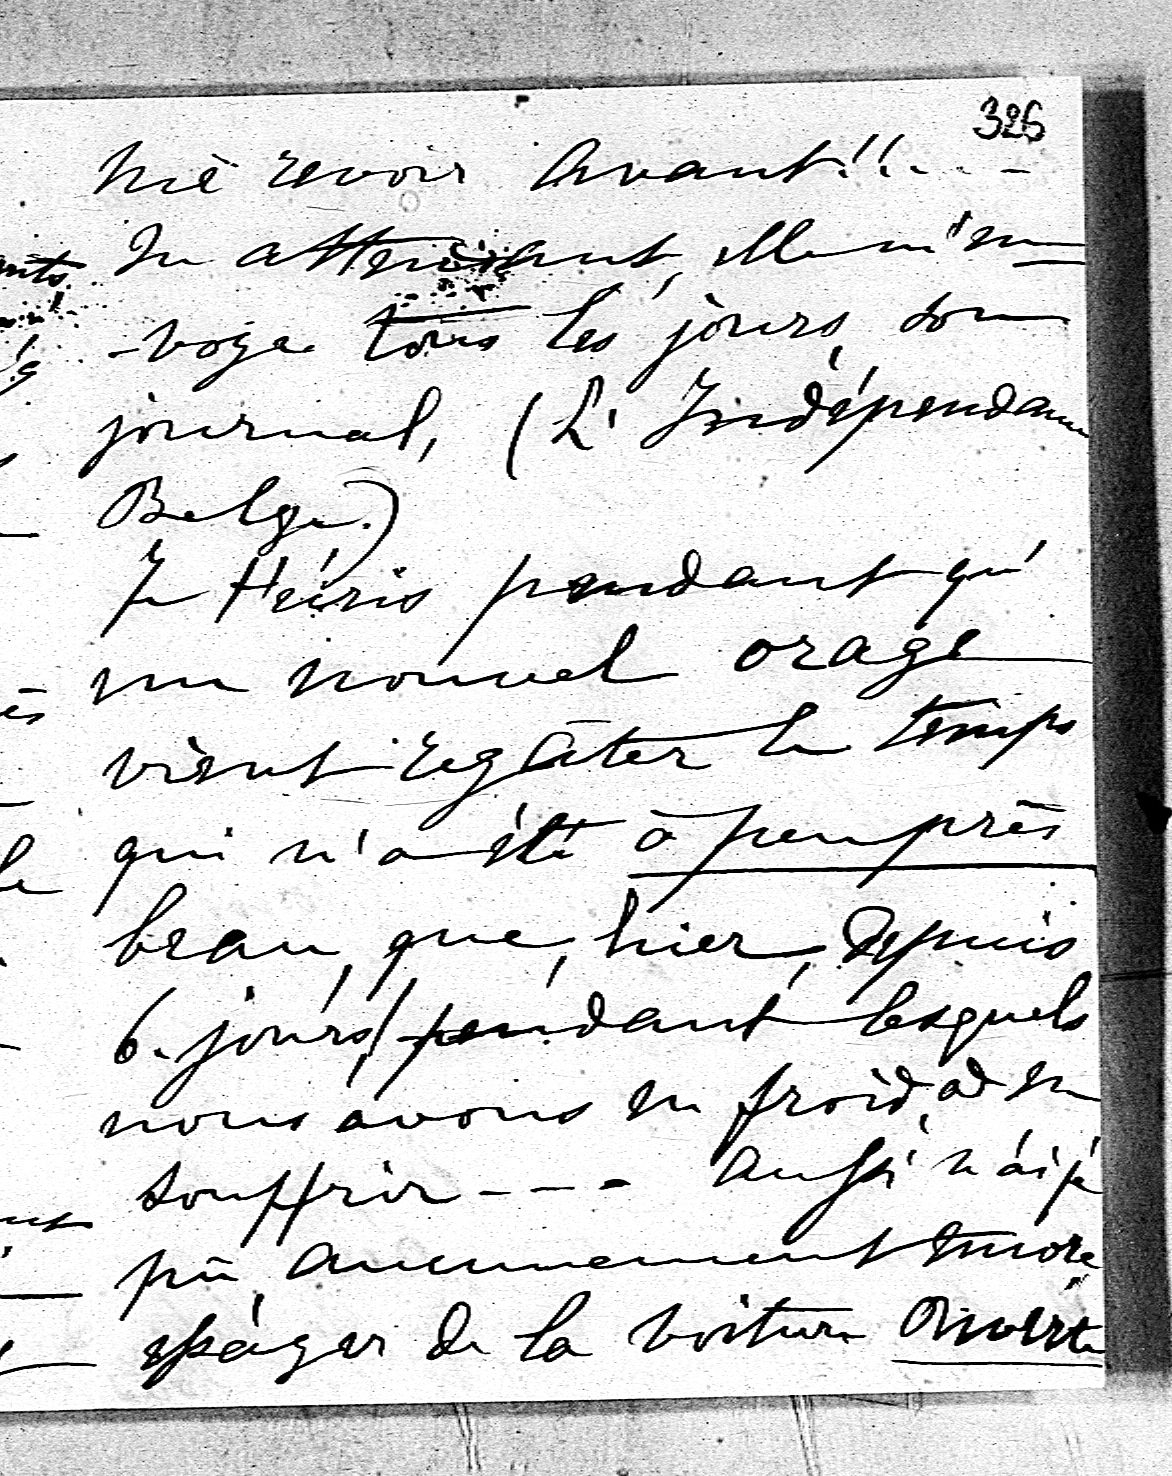 326
me revoir avant!!....
En attendant, elle m'en
-voye tous les jours, son
journal, (L'Indépendance
Belge.)
Je t'écris pendant qu'
un nouvel orage
vient regâter le temps
qui n'a été à peu près
beau, que, hier, depuis
6. jours! pendant lesquels
nous avons eu froid, à en
souffrir---- aussi n'ai je
pû, aucunement encore
de la voiture ouverte